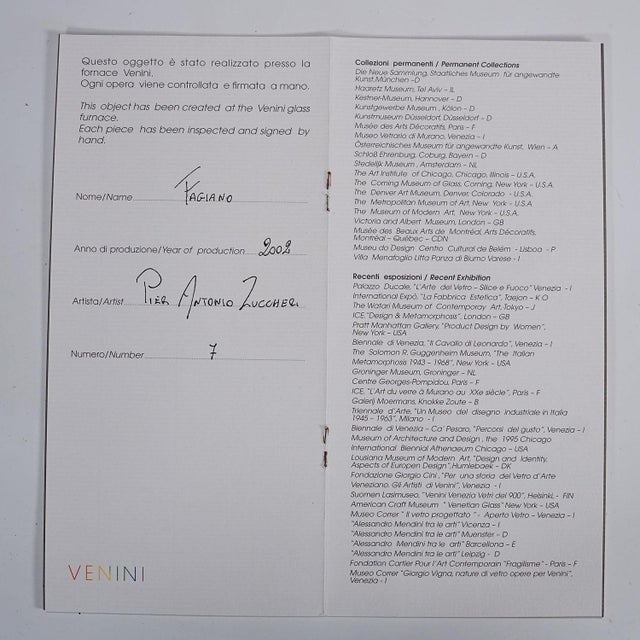 Questo oggetto è stato realizzato presso la
fornace Venini.
Ogni opera viene controllata e firmata a mano.
This object has been created at the Venini glass
furnace.
Each piece has been inspected and signed by
hand.
Nome/Name FAGIANO
Anno di produzione/Year of production 2002
Artista/Artist PIER ANTONIO ZUCCHERI
Numero/Number 7
VENINI
Collezioni permanenti / Permanent Collections
Die Neue Sammlung, Staatliches Museum für angewandte
Kunst,München -D
Haaretz Museum, Tel Aviv - IL
Kestner-Museum, Hannover - D
Kunstgewerbe Museum , Kölon - D
Kunstmuseum Düsseldorf, Düsseldorf - D
Musée des Arts Décoratifs, Paris - F
Museo Vetrario di Murano, Venezia - I
Österreichisches Museum für angewandte Kunst, Wien - A
Schloß Ehrenburg, Coburg, Bayern - D
Stedelijk Museum , Amsterdam - NL
The Art Institute of Chicago, Chicago, Illinois - U.S.A.
The Corning Museum of Glass, Corning, New York - U.S.A.
The Denver Art Museum, Denver, Colorado - U.S.A.
The Metropolitan Museum of Art, New York - U.S.A
The Museum of Modern Art, New York - U.S.A.
Victoria and Albert Museum, London - GB
Musée des Beaux Arts de Montréal, Arts Décoratifs,
Montréal - Québec - CDN
Museu do Design Centro Cultural de Belém - Lisboa - P
Villa Menafoglio Litta Panza di Biumo Varese - I
Recenti esposizioni / Recent Exhibition
Palazzo Ducale, "L'Arte del Vetro - Silice e Fuoco" Venezia - I
International Expò, "La Fabbrica Estetica", Taejon - K O
The Watari Museum of Contemporay Art, Tokyo - J
ICE,"Design & Metamorphosis", London - GB
Pratt Manhattan Gallery, "Product Design by Women",
New York - USA
Biennale di Venezia, "Il Cavallo di Leonardo", Venezia - I
The Solomon R. Guggenheim Museum, "The Italian
Metamorphosis 1943 - 1968", New York - USA
Groninger Museum, Groninger - NL
Centre Georges-Pompidou, Paris - F
ICE, "L'Art du verre à Murano au XXe siècle", Paris - F
Galerij Moermans, Knokke Zoute - B
Triennale d'Arte, "Un Museo del disegno industriale in Italia
1945 - 1963", Milano - I
Biennale di Venezia - Ca' Pesaro, "Percorsi del gusto", Venezia - I
Museum of Architecture and Design , the 1995 Chicago
International Biennial Athenaeum Chicago - USA
Lousiana Museum of Modern Art, "Design and Identity,
Aspects of Europen Design",Humlebaek - DK
Fondazione Giorgio Cini ,"Per una storia del Vetro d'Arte
Veneziano. Gli Artisti di Venini", Venezia - I
Suomen Lasimuseo, "Venini Venezia Vetri del 900", Helsinki, - FIN
American Craft Museum " Venetian Glass" New York - USA
Museo Correr " Il vetro progettato " - Aperto Vetro - Venezia - I
"Alessandro Mendini tra le arti" Vicenza - I
"Alessandro Mendini tra le arti" Muenster - D
"Alessandro Mendini tra le arti" Barcellona - E
"Alessandro Mendini tra le arti" Leipzig - D
Fondation Cartier Pour l'Art Contemporain "Fragilisme" - Paris - F
Museo Correr "Giorgio Vigna, nature di vetro opere per Venini",
Venezia - I